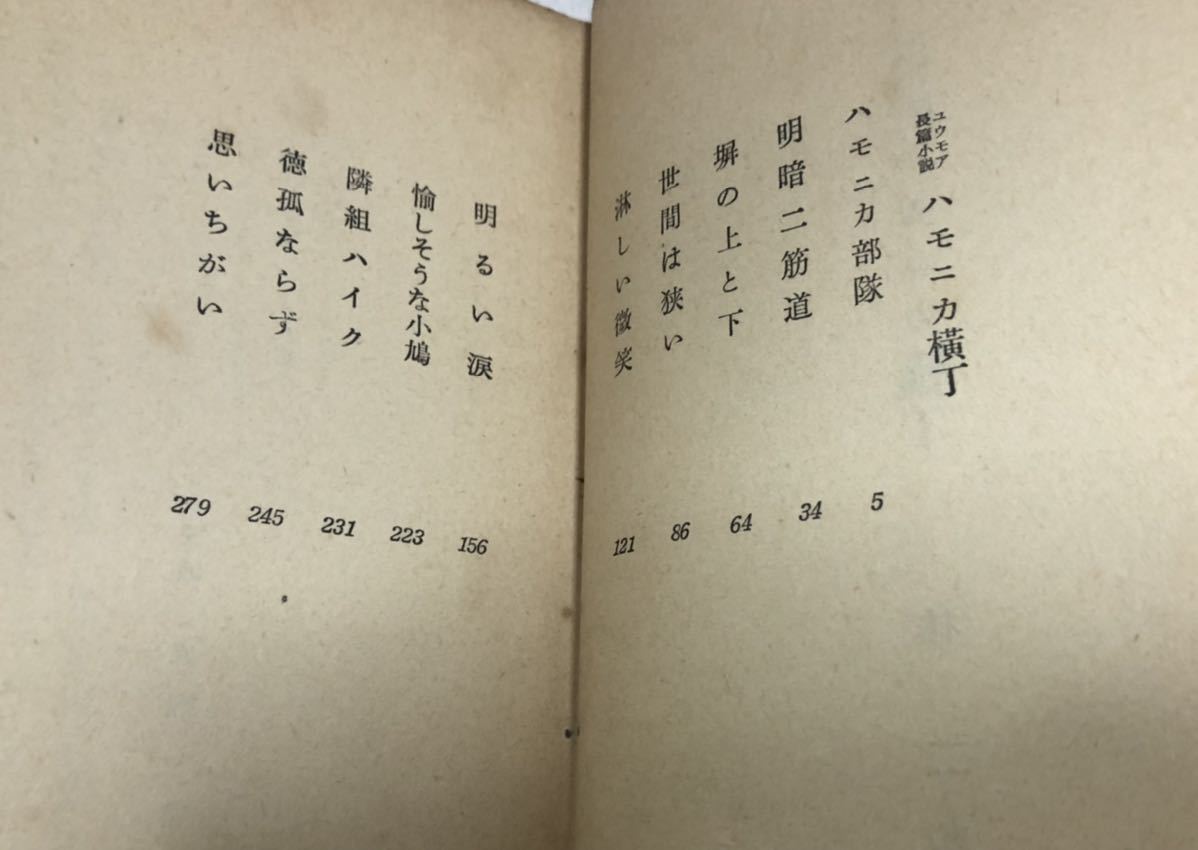 ユウモア
長篇小説
ハモニカ横丁
ハモニカ部隊
5
明暗二筋道
34
塀の上と下
64
世間は狭い
86
淋しい微笑
121
明るい涙
156
愉しそうな小鳩
223
隣組ハイク
231
徳孤ならず
245
思いちがい
279